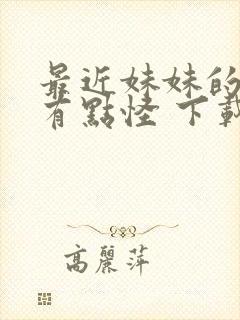 最近妹妹的
有點怪 下載
高麗萍